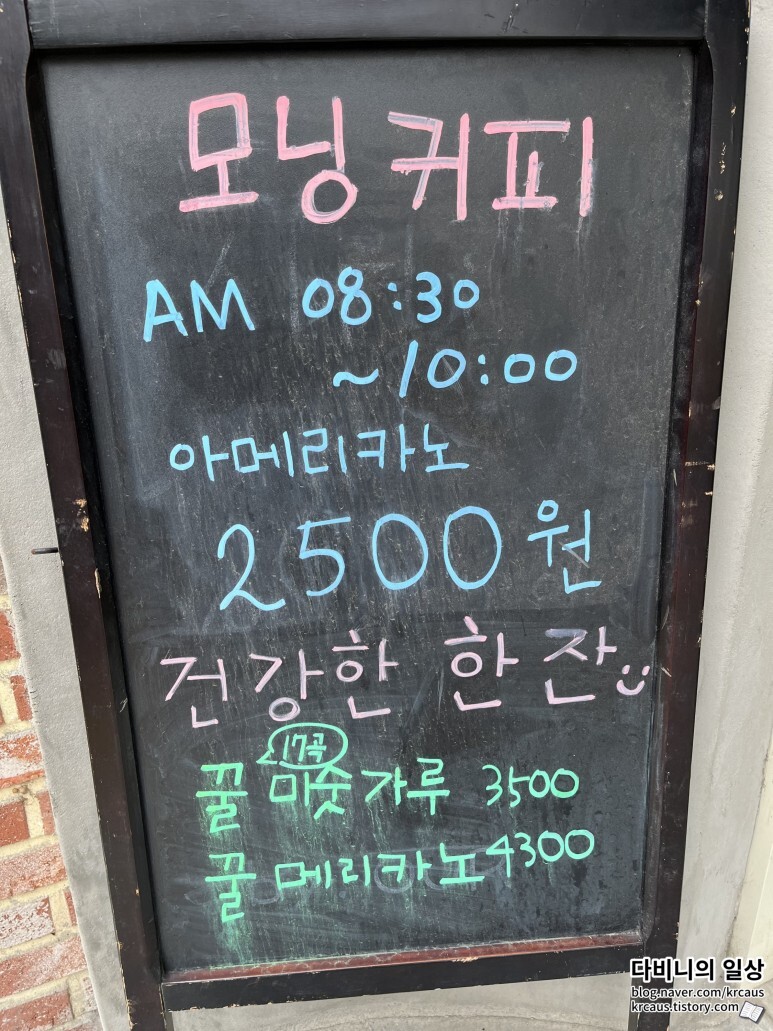 모닝 귀피
AM 08:30
~10:00
아메리카노
2500원
건강한 한 잔
17곡
꿀 미숫가루 3500
꿀 메리카노 4300
다비니의 일상
blog.naver.com/krcaus
krcaus.tistory.com